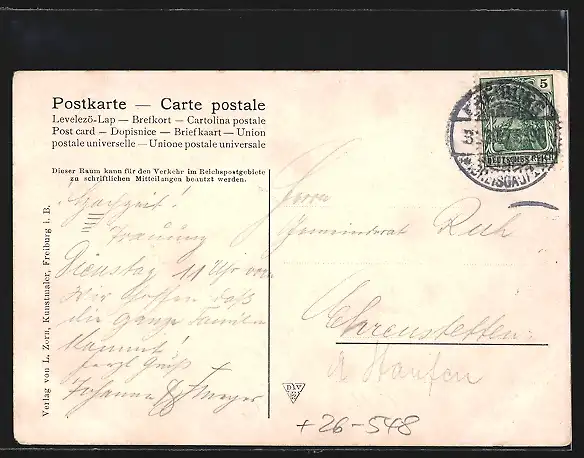 Postkarte — Carte postale
Levelezö-Lap — Brefkort — Cartolina postale
Post card — Dopisnice — Briefkaart — Union
postale universelle — Unione postale universale
Dieser Raum kann für den Verkehr im Reichspostgebiete
zu schriftlichen Mitteilungen benutzt werden.
Hochzeit!
Trauung
Dienstag 11 Uhr vor
Wir hoffen daß
die ganze Familie
kommt!
herzl Gruß
Johanna Meyer
Verlag von L. Zorn, Kunstmaler, Freiburg i. B.
5
DEUTSCHES REICH
FREIBURG
(BREISGAU)
Herrn
Gemeinderat Ruh
Ehrenstetten
a Staufen
+26-548